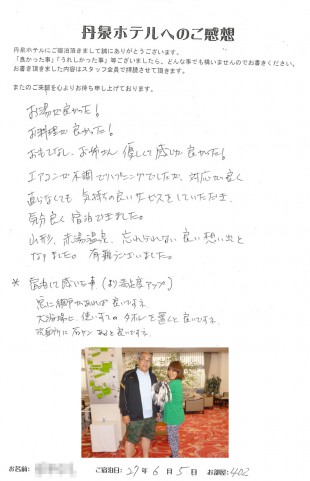 丹泉ホテルへのご感想
丹泉ホテルにご宿泊頂きまして誠にありがとうございます。
「良かった事」「うれしかった事」等ございましたら、どんな事でも構いませんのでお書きください。
お書き頂きました内容はスタッフ全員で拝読させて頂きます。
またのご来館を心よりお待ち申し上げております。
お湯が良かった!
お料理が良かった!
おもてなし、お姉さん 優しくて感じが良かった!
エアコンが不調でハプニングでしたが、対応が良く
直らなくても気持の良いサービスをしていただき、
気分良く宿泊できました。
山形、赤湯温泉、忘れられない良い想い出と
なりました。有難うございました。
* 宿泊して感じた事(より満足度アップ)
窓に網戸があれば良いですネ。
大浴場に、使いすての タオルを置くと良いですネ。
洗面所に石ケン あると良いです。
お名前:
ご宿泊日: 27年 6月 5日 お部屋: 402